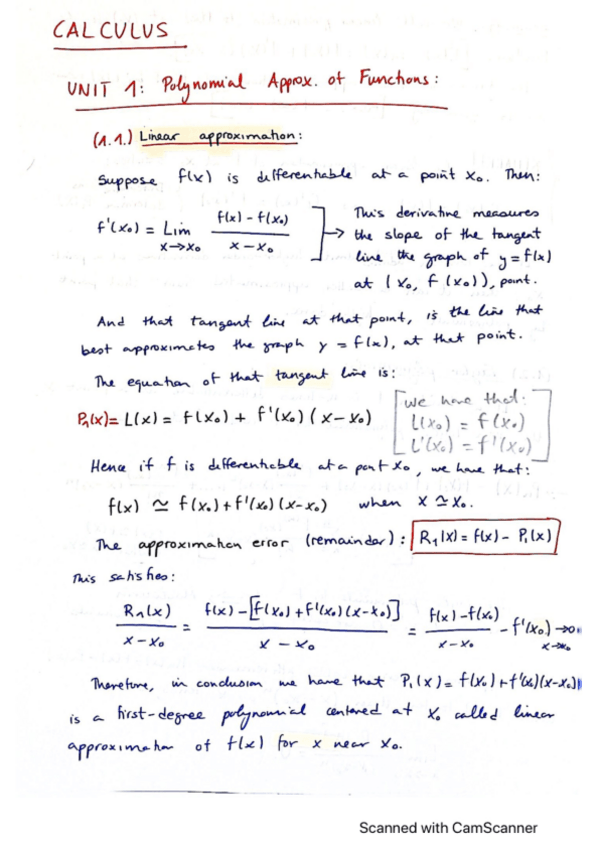 CALCULUS
UNIT 1: Polynomial Approx. of Functions:
(1.1.) Linear approximation:
Suppose f(x) is differentiable at a point x₀. Then:
f'(x₀) = Lim x→x₀ f(x) - f(x₀) / x - x₀
This derivative measures
→ the slope of the tangent
line the graph of y = f(x)
at (x₀, f(x₀)), point.
And that tangent line at that point, is the line that
best approximates the graph y = f(x), at that point.
The equation of that tangent line is:
P₁(x) = L(x) = f(x₀) + f'(x₀)(x - x₀)
We have that:
L(x₀) = f(x₀)
L'(x₀) = f'(x₀)
Hence if f is differentiable at a point x₀, we have that:
f(x) ≃ f(x₀) + f'(x₀)(x - x₀) when x ≃ x₀.
The approximation error (remainder): R₁(x) = f(x) - P₁(x)
This satisfies:
R₁(x) / x - x₀ = f(x) - [f(x₀) + f'(x₀)(x - x₀)] / x - x₀ = f(x) - f(x₀) / x - x₀ - f'(x₀) → 0 x→x₀
Therefore, in conclusion we have that P₁(x) = f(x₀) + f'(x₀)(x - x₀)
is a first-degree polynomial centered at x₀ called linear
approximation of f(x) for x near x₀.
Scanned with CamScanner